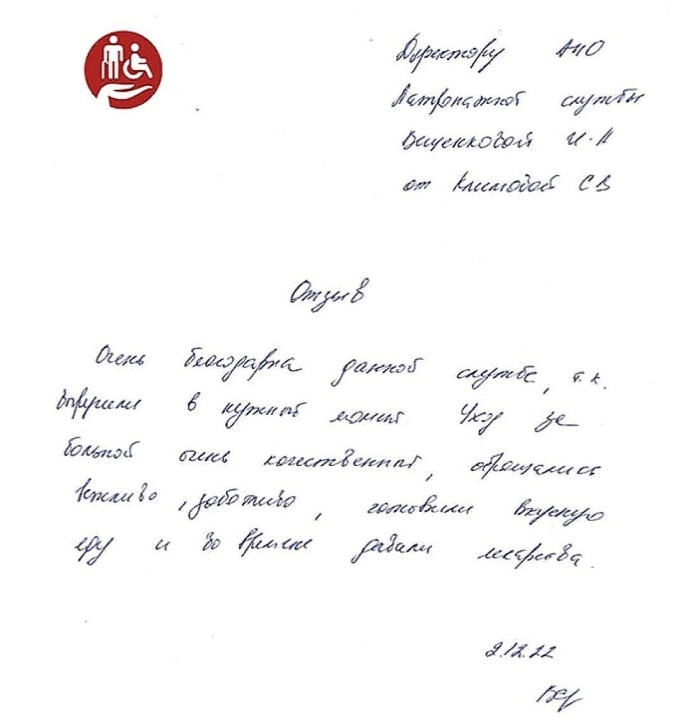 Директору АНО
Патронажной службы
Вищенковой И.А
от Климовой СВ
Отзыв
Очень благодарна данной службе, т.к.
выручили в нужный момент. Уход за
больной очень качественный, обращались
вежливо, заботливо, готовили вкусную
еду и во время давали лекарства.
2.12.22